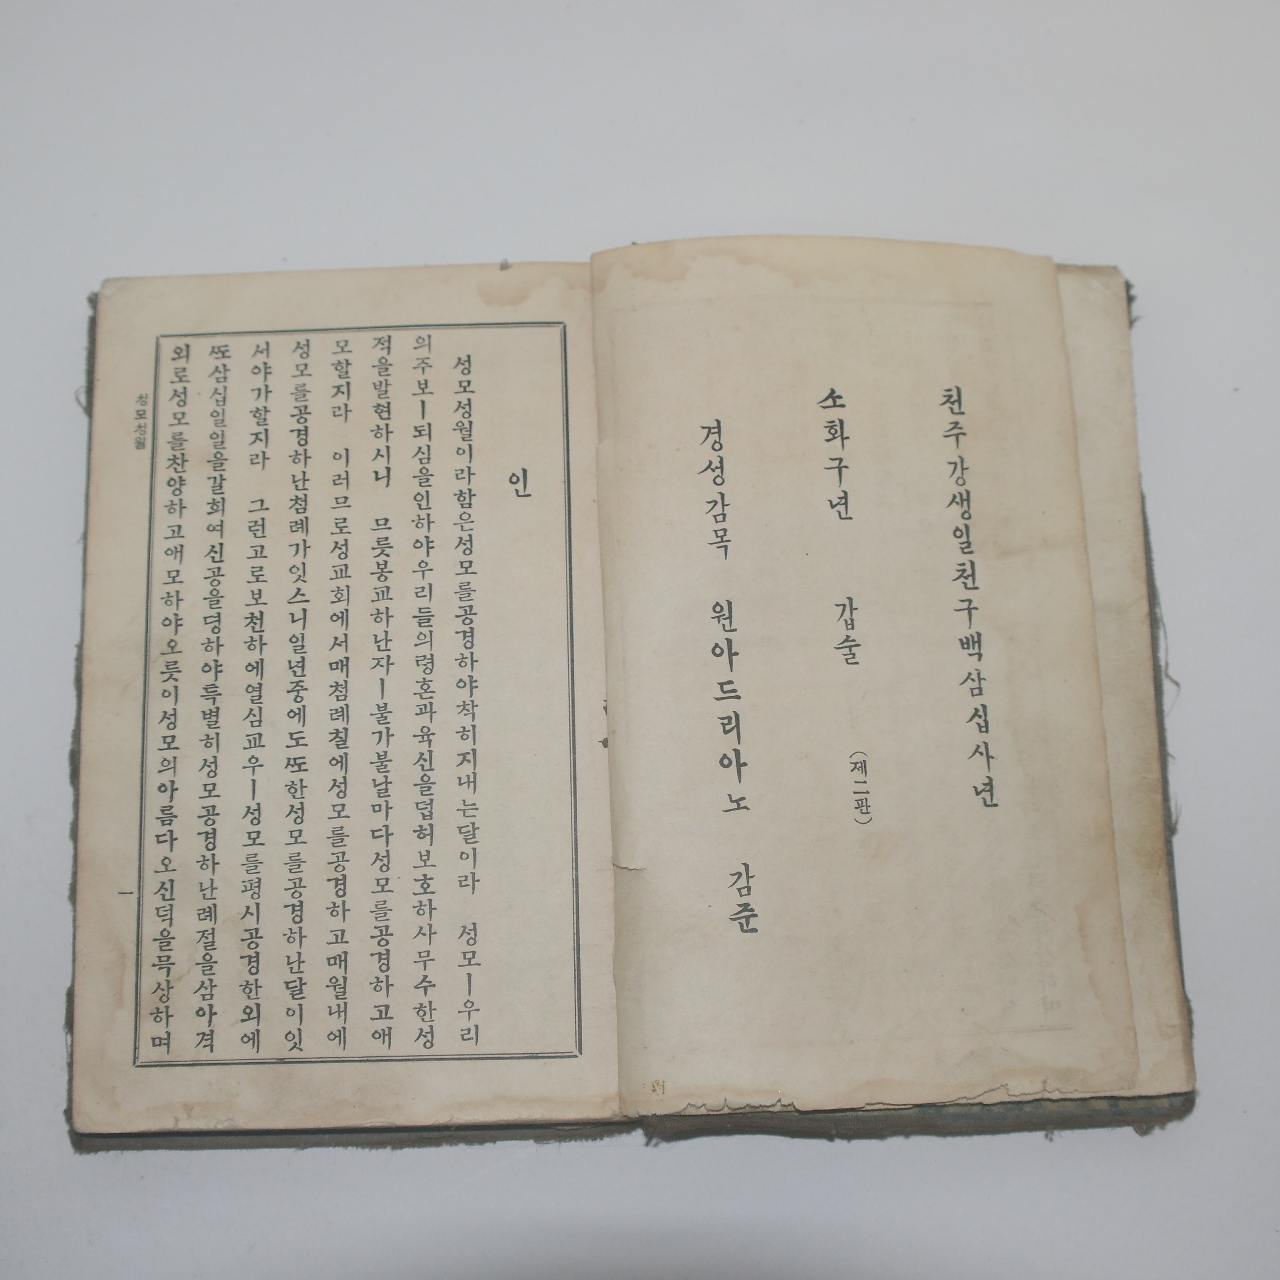 천주강생일천구백삼십사년
소화구년 갑술 (제二판)
경성감목 원아드리아노 감준
인
성모성월이라함은성모를공경하야착히지내는달이라 성모ㅣ우리
의주보ㅣ되심을인하야우리들의령혼과육신을덥허보호하사무수한성
적을발현하시니 므릇봉교하난자ㅣ불가불날마다성모를공경하고애
모할지라 이러므로성교회에서매첨례칠에성모를공경하고매월내에
성모를공경하난첨례가잇스니일년중에도ᄯᅩ한성모를공경하난달이잇
서야가할지라 그런고로보천하에열심교우ㅣ성모를평시공경한외에
ᄯᅩ삼십일일을갈희여신공을뎡하야특별히성모공경하난례절을삼아격
외로성모를찬양하고애모하야오릇이성모의아름다오신덕을묵상하며
성모성월
一